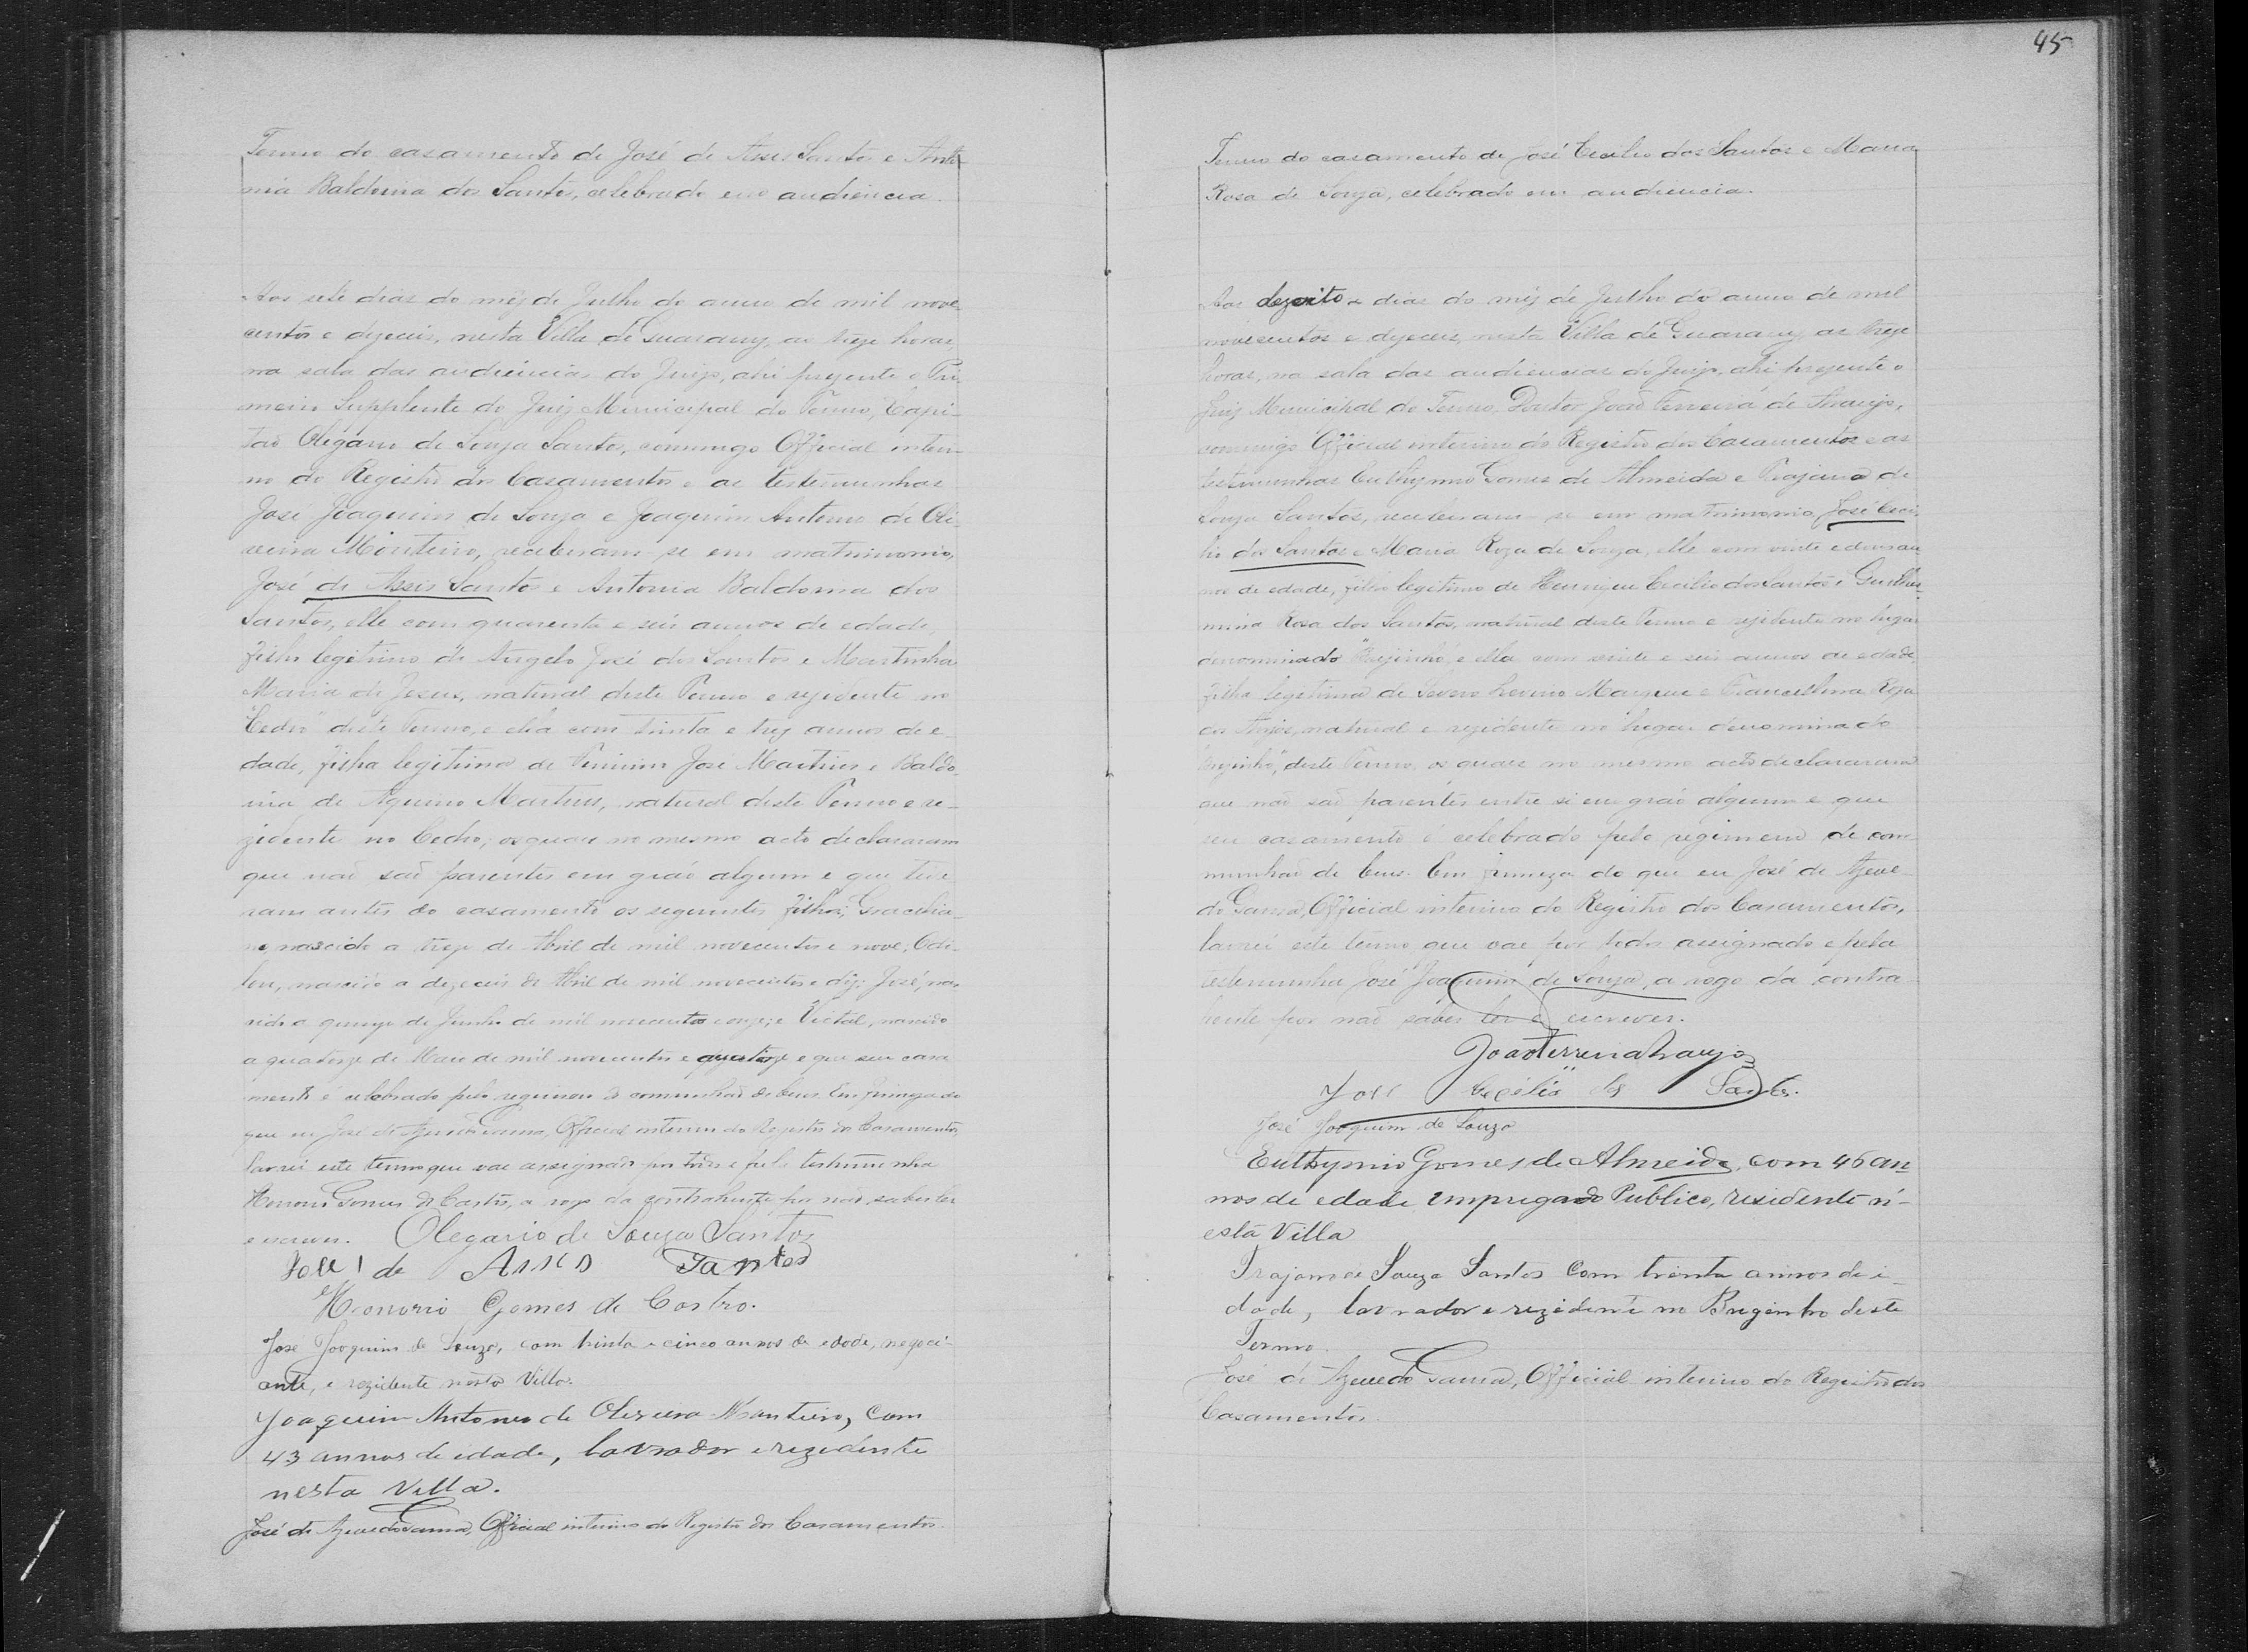 Termo do casamento de José de Assis Santos e Anto-
nia Baldoina dos Santos, celebrado em audiencia.
Aos sete dias do mez de Julho do anno de mil nove-
centos e dezeseis, nesta Villa de Guarany, as treze horas,
na sala das audiencias do Juizo, ahi prezente o Pri-
meiro Supplente do Juiz Municipal do Termo, Capi-
tão Olegario de Souza Santos, commigo Official interi-
no do Registro dos Casamentos e as testemunhas
José Joaquim de Souza e Joaquim Antonio de Oli-
veira Monteiro, receberam-se em matrimonio,
José de Assis Santos e Antonia Baldoina dos
Santos, elle com quarenta e seis annos de edade,
filho legitimo de Angelo José dos Santos e Martinha
Maria de Jesus, natural deste Termo e rezidente no
"Cedro" deste Termo, e ella com trinta e trez annos de e-
dade, filha legitima de José Martins e Baldo-
ina de Aquino Martins, natural deste Termo e re-
zidente no Cedro; os quaes no mesmo acto declararam
que não são parentes em gráo algum e que tive-
ram antes do casamento os seguintes filhos; Gracilia-
no, nascido a treze de Abril de mil novecentos e nove; Odi-
lon, nascido a dezeseis de Abril de mil novecentos e dez; José, nas-
cido a quinze de Junho de mil novecentos e onze; e Victal, nascido
a quatorze de Maio de mil novecentos e quatorze e que seu casa-
mento é celebrado pelo regimen de communhão de bens. Em firmeza do
que eu José de Azevedo Gama, Official interino do Registro dos Casamentos,
lavrei este termo que vae assignado por todos e pela testemunha
Honorio Gomes de Castro, a rogo da contrahente por não saber ler
e escrever. Olegario de Souza Santos
José de Assis Santos
Honorio Gomes de Castro.
José Joaquim de Souza, com trinta e cinco annos de edade, negoci-
ante, e rezidente nesta Villa.
Joaquim Antonio de Oliveira Monteiro, com
43 annos de edade, lavrador e rezidente
nesta Villa.
José de Azevedo Gama, Official interino do Registro dos Casamentos.
45
Termo do casamento de José Cecilio dos Santos e Maria
Rosa de Souza, celebrado em audiencia.
Aos dezoito dias do mez de Julho do anno de mil
novecentos e dezeseis, nesta Villa de Guarany, as treze
horas, na sala das audiencias do Juizo, ahi prezente o
Juiz Municipal do Termo, Doutor João Ferreira de Araujo,
commigo Official interino do Registro dos Casamentos e as
testemunhas Euthymio Gomes de Almeida e Trajano de
Souza Santos, receberam-se em matrimonio, José Ceci-
lio dos Santos e Maria Roza de Souza, elle com vinte e dous an-
nos de edade, filho legitimo de Henrique Cecilio dos Santos e Guilher-
mina Rosa dos Santos, natural deste Termo e rezidente no lugar
denominado "Brejinho", e ella com vinte e seis annos de edade,
filha legitima de Severo Marques e Francelina Roza
dos Anjos, natural e rezidente no lugar denominado
deste Termo, os quaes no mesmo acto declararam
que não são parentes entre si em gráo algum e que
seu casamento é celebrado pelo regimem de com-
munhão de bens. Em firmeza do que eu José de Azeve-
do Gama, Official interino do Registro dos Casamentos,
lavrei este termo que vae por todos assignado e pela
testemunha José Joaquim de Souza, a rogo da contra-
hente por não saber ler e escrever.
João Ferreira Araujo
José Cecilio dos Santos.
José Joaquim de Souza
Euthymio Gomes de Almeida, com 46 an
nos de edade Empregado Publico, residente n'-
esta Villa
Trajano de Souza Santos com trinta annos de i-
dade, lavrador e rezidente no Breginho deste
Termo.
José de Azevedo Gama, Official interino do Registro dos
Casamentos.